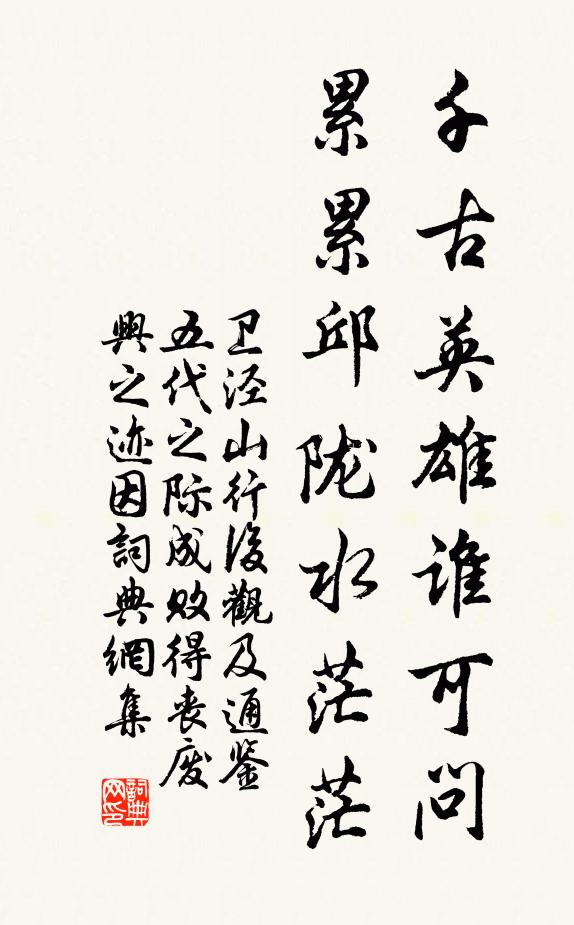 千古英雄谁可问
累累邱陇水茫茫
卫泾山行後觀及通鉴
五代之际成败得丧废
興之迹因詞典網集
詞典网印